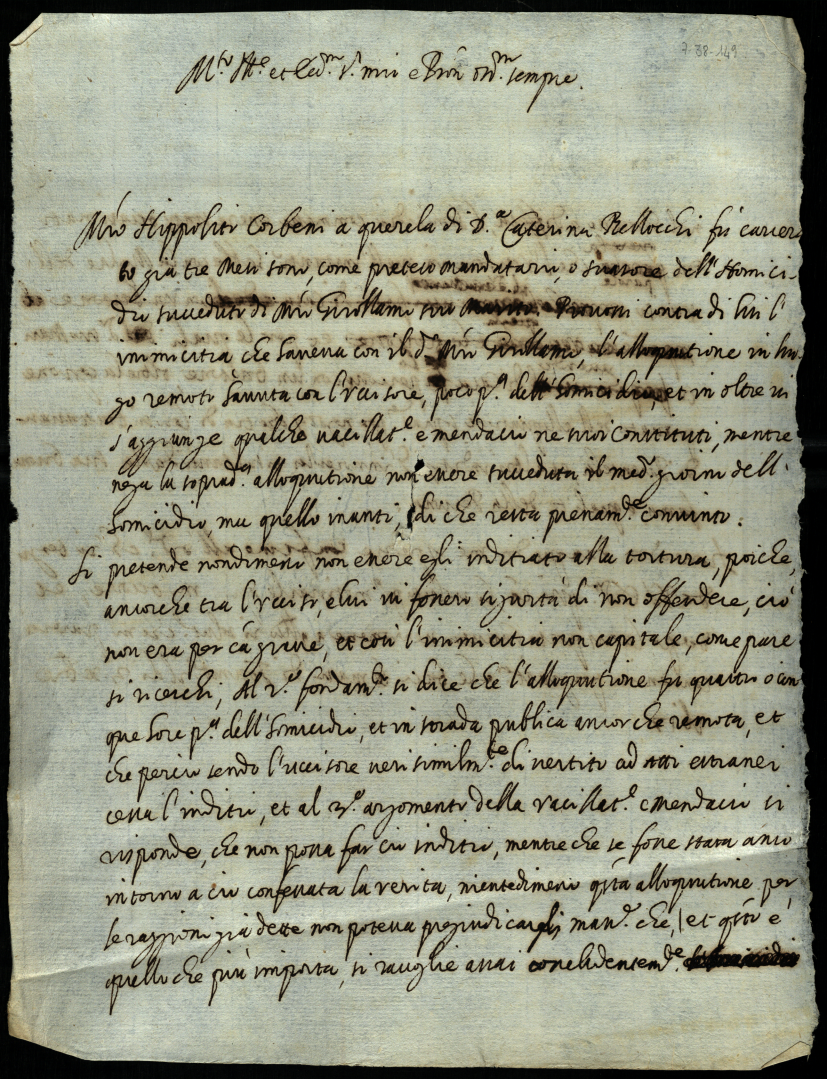 7-38-149
M.to Ill.e et Ecc.m S.r mio e Pron oss.m sempre.
Mro Hippolito Corbeni a querela di D.a Caterina Bellocchi fù carcera
to già tre mesi sono, come preteso mandatario, o suasore dell'Homici-
dio succeduto di Mro Girollamo suo marito. Provossi contra di lui l'
inimicitia che haveva con il d.o Mro Girollamo, l'alloquutione in luo-
go remoto havuta con l'uccisore, poco p.a dell'homicidio, et in oltre vi
s'aggiunge qualche vacillat.e e mendacio ne suoi constituti, mentre
nega la soprad.a alloquutione non essere succeduta il med.o giorno dell'
homicidio, ma quello inanti, di che resta pienam.te convinto.
Si pretende nondimeno non essere egli inditiato alla tortura, poiche,
ancorche tra l'ucciso, e lui vi fossero sigortà di non offendere, ciò
non era per cā grave, et così l'inimicitia non capitale, come pare
si ricerchi; Al 2.o fondam.to si dice che l'alloquutione fù quattro o cin
que hore p.a dell'homicidio, et in strada publica ancor che remota, et
che perciò sendo l'uccisore verisimilm.te divertito ad atti estranei
cessa l'inditio, et al 3.o argomento della vacillat.e e mendacio si
risponde, che non possa far ciò inditio, mentre che se fosse stata anco
intorno a ciò confessata la verita, nientedimeno q.sta alloquutione per
le raggioni già dette non poteva pregiudicargli man.o che, et q.sto è
quello che più importa, si raccoglie assai concludentem.te